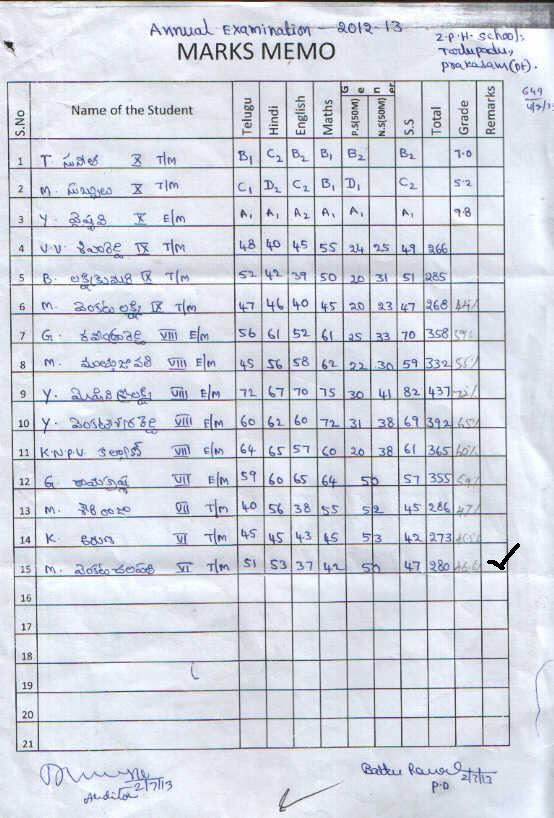 Annual Examination - 2012-13
MARKS MEMO
Z.P.H. School,
Tadupadu,
prakasam(Dt).
S.No Name of the Student Telugu Hindi English Maths Gener P.S(50M) N.S(50M) S.S Total Grade Remarks
649
1 T. సునీత X T/M B1 C2 B2 B1 B2 B2 7.0
2 M. సుబ్బులు X T/M C1 D2 C2 B1 D1 C2 5.2
3 Y. వైష్ణవి X E/M A1 A1 A2 A1 A1 A1 9.8
4 V.V. శివారెడ్డి IX T/M 48 40 45 55 24 25 49 266
5 B. లక్ష్మీకుమారి IX T/M 52 42 39 50 20 31 51 285
6 M. వెంకట లక్ష్మి IX T/M 47 46 40 45 20 23 47 268
7 G. VIII E/M 56 61 52 61 25 33 70 358
8 M. VIII E/M 45 56 58 62 22 30 59 332
9 Y. VIII E/M 72 67 70 75 30 41 82 437
10 Y. VIII E/M 60 62 60 72 31 38 69 392
11 K.N.P.V. కళ్యాణ్ VIII E/M 64 65 57 60 20 38 61 365
12 G. రామకృష్ణ VII E/M 59 60 65 64 50 57 355
13 M. VII T/M 40 56 38 55 52 45 286
14 K. కిరణ్ VI T/M 45 45 43 45 53 42 273
15 M. వెంకట చలపతి VI T/M 51 53 37 42 50 47 280
16
17
18
19
20
21
2/7/13
Auditor
2/7/13
P.D